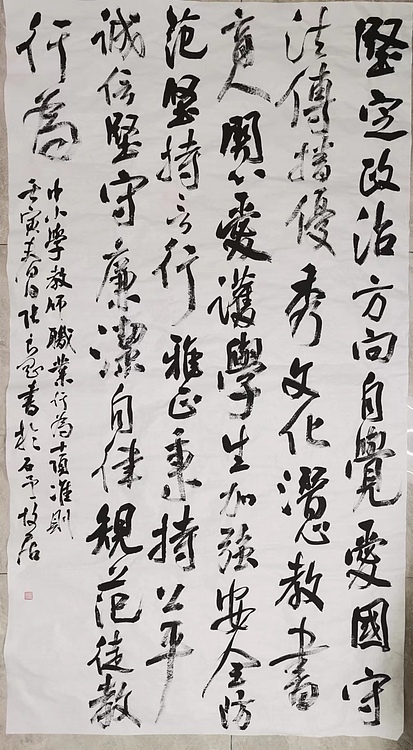 堅定政治方向自覺愛國守
法傳播優秀文化潛心教書
育人關心愛護學生加強安全防
范堅持言行雅正秉持公平
誠信堅守廉潔自律規范從教
行為
中小學教師職業行為十項准則
壬寅書於故居